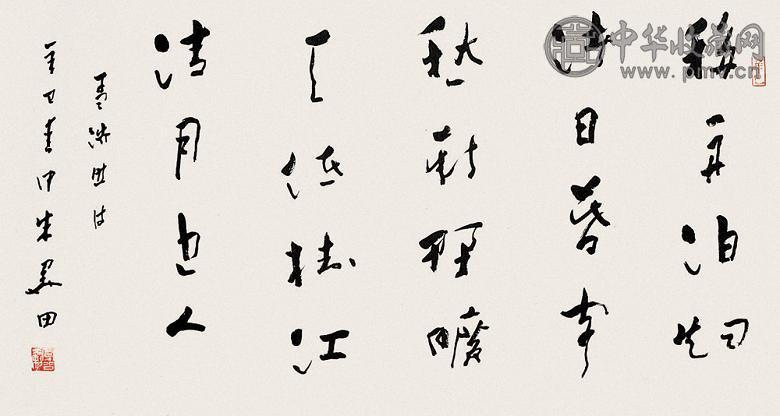 中华收藏网
移舟泊烟
渚日暮客
愁新野曠
天低樹江
清月近人
孟浩然诗
辛巳春中朱关田